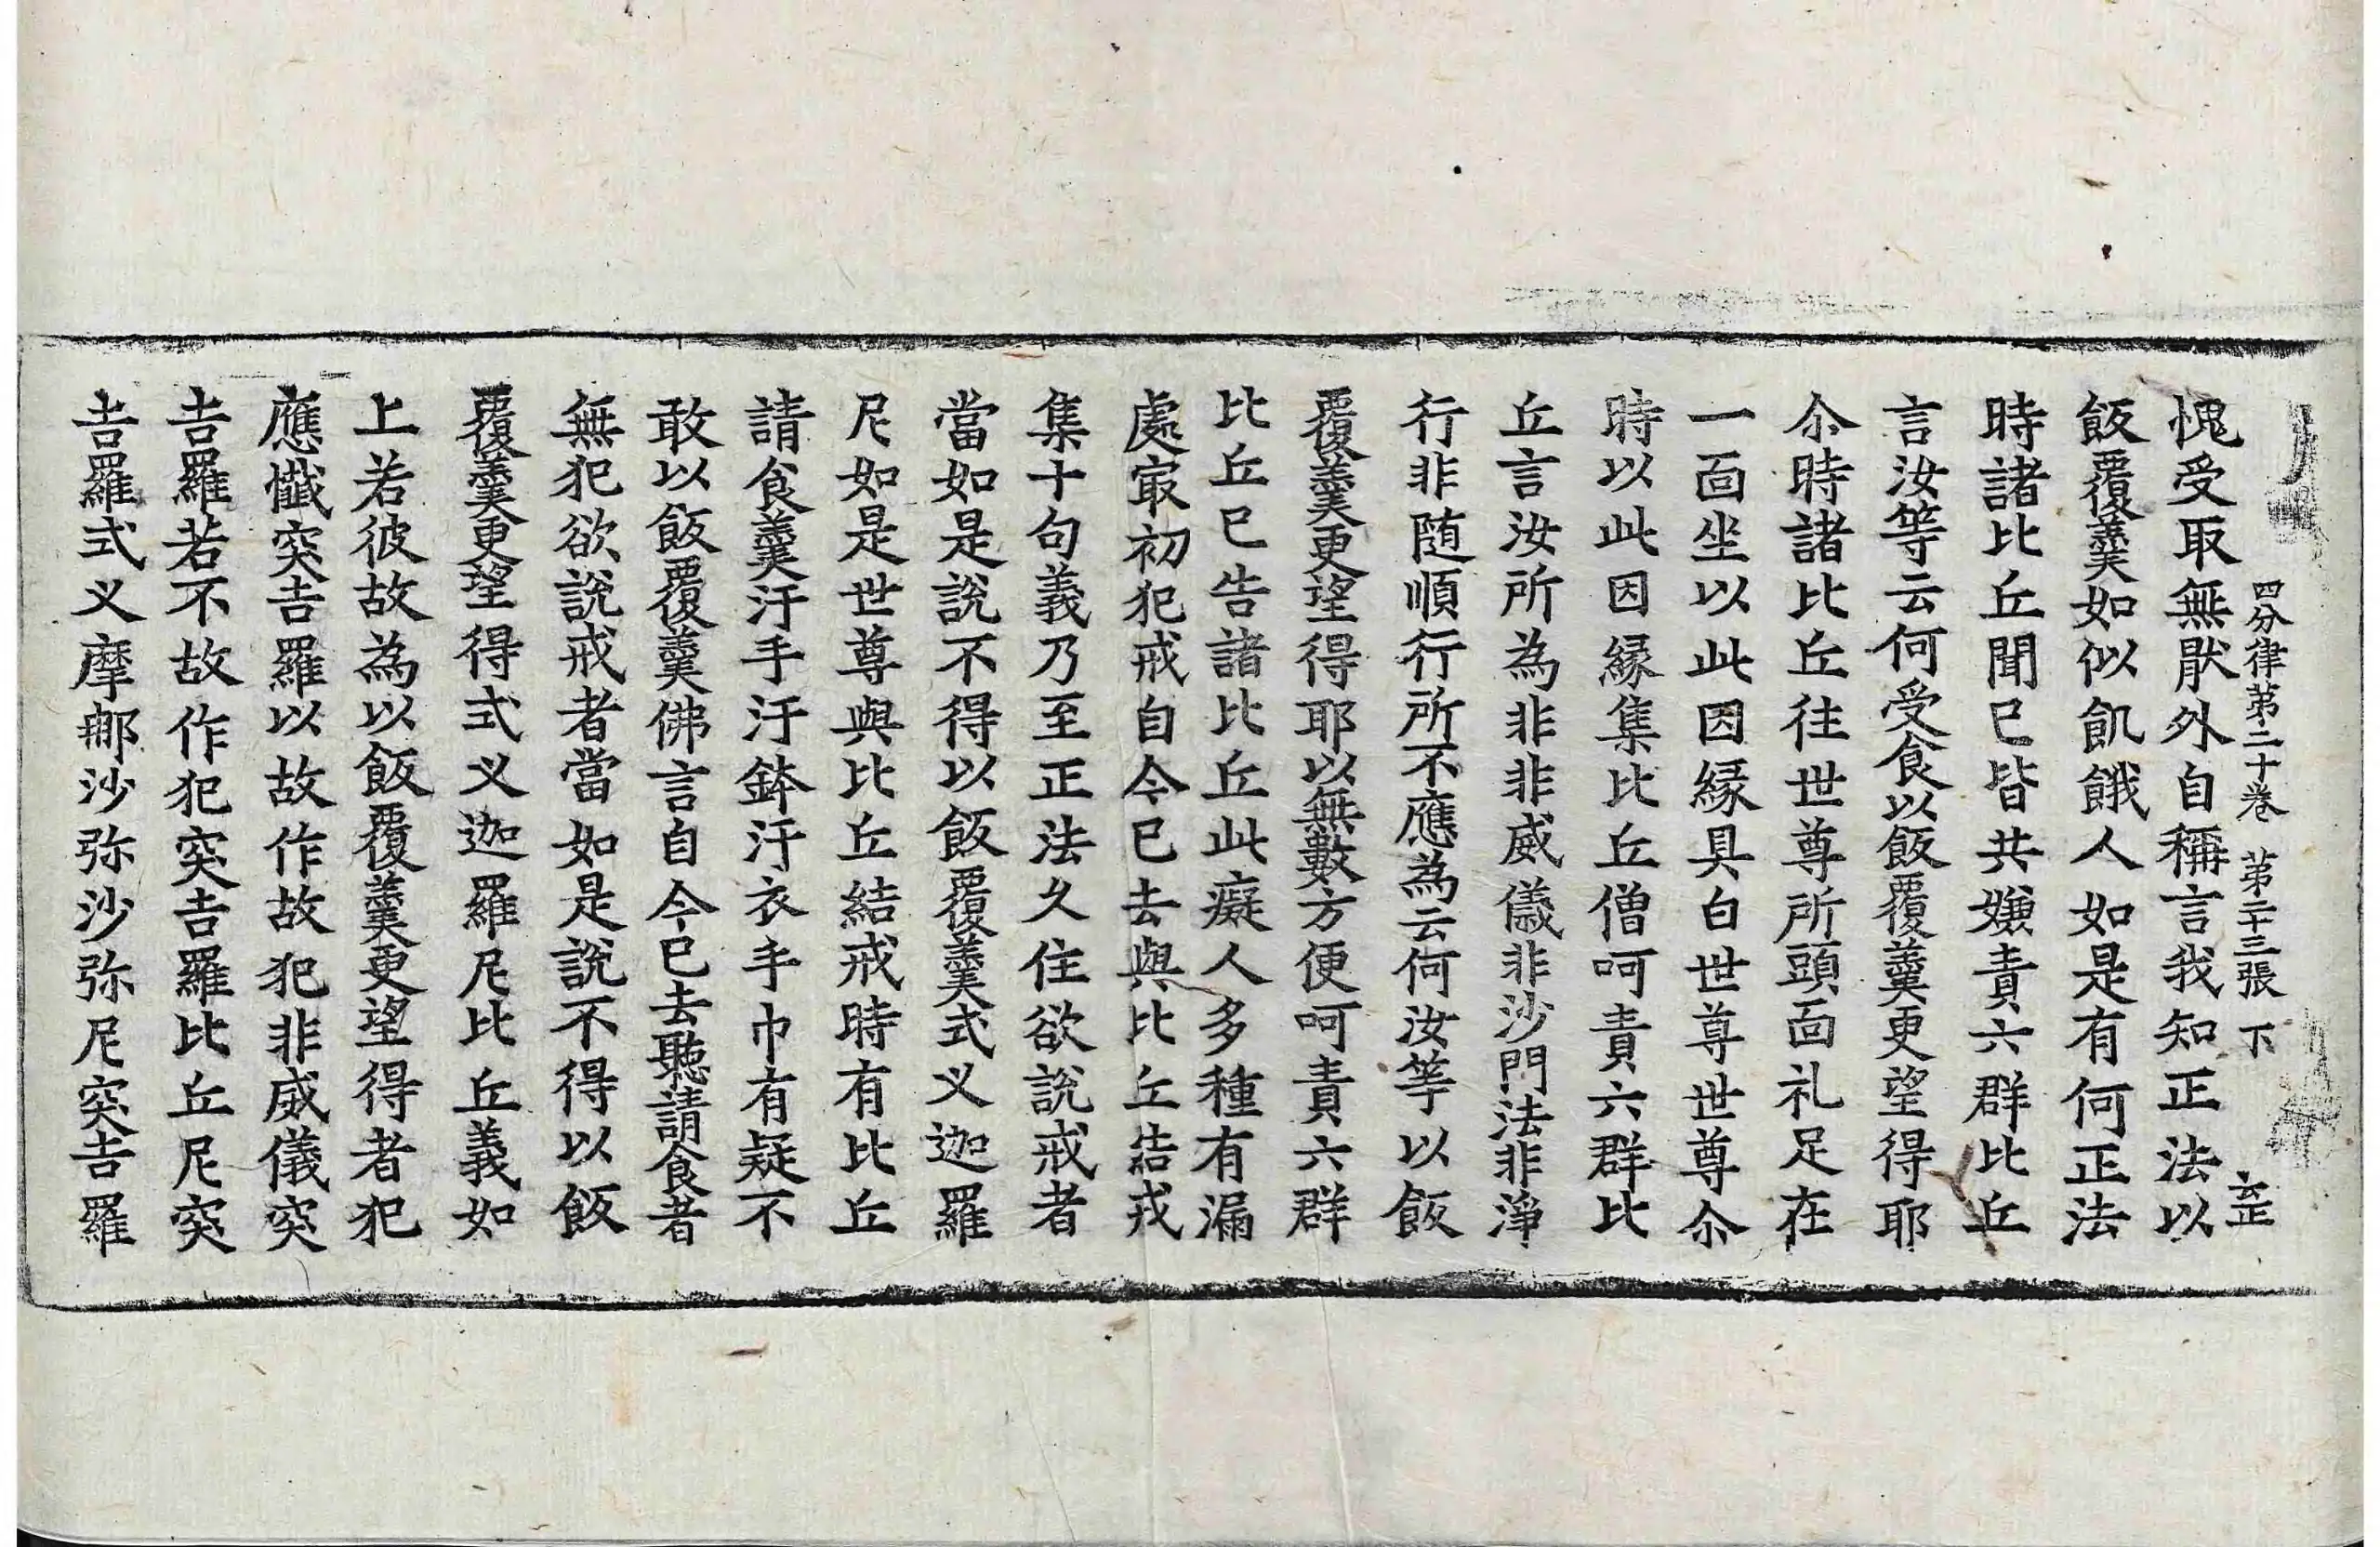 四分律第二十卷 第二十三張 下
愧受取無猒外自稱言我知正法以
飯覆羹如似飢餓人如是有何正法
時諸比丘聞已皆共嫌責六群比丘
言汝等云何受食以飯覆羹更望得耶
尒時諸比丘往世尊所頭面礼足在
一面坐以此因緣具白世尊世尊尒
時以此因緣集比丘僧呵責六群比
丘言汝所為非非威儀非沙門法非淨
行非随順行所不應為云何汝等以飯
覆羹更望得耶以無數方便呵責六群
比丘已告諸比丘此癡人多種有漏
處冣初犯戒自今已去與比丘結戒
集十句義乃至正法久住欲說戒者
當如是說不得以飯覆羹式义迦羅
尼如是世尊與比丘結戒時有比丘
請食羹汙手汙鉢汙衣手巾有疑不
敢以飯覆羹佛言自今已去聽請食者
無犯欲說戒者當如是說不得以飯
覆羹更望得式义迦羅尼比丘義如
上若彼故為以飯覆羹更望得者犯
應懺突吉羅以故作故犯非威儀突
吉羅若不故作犯突吉羅比丘尼突
吉羅式义摩那沙弥沙弥尼突吉羅